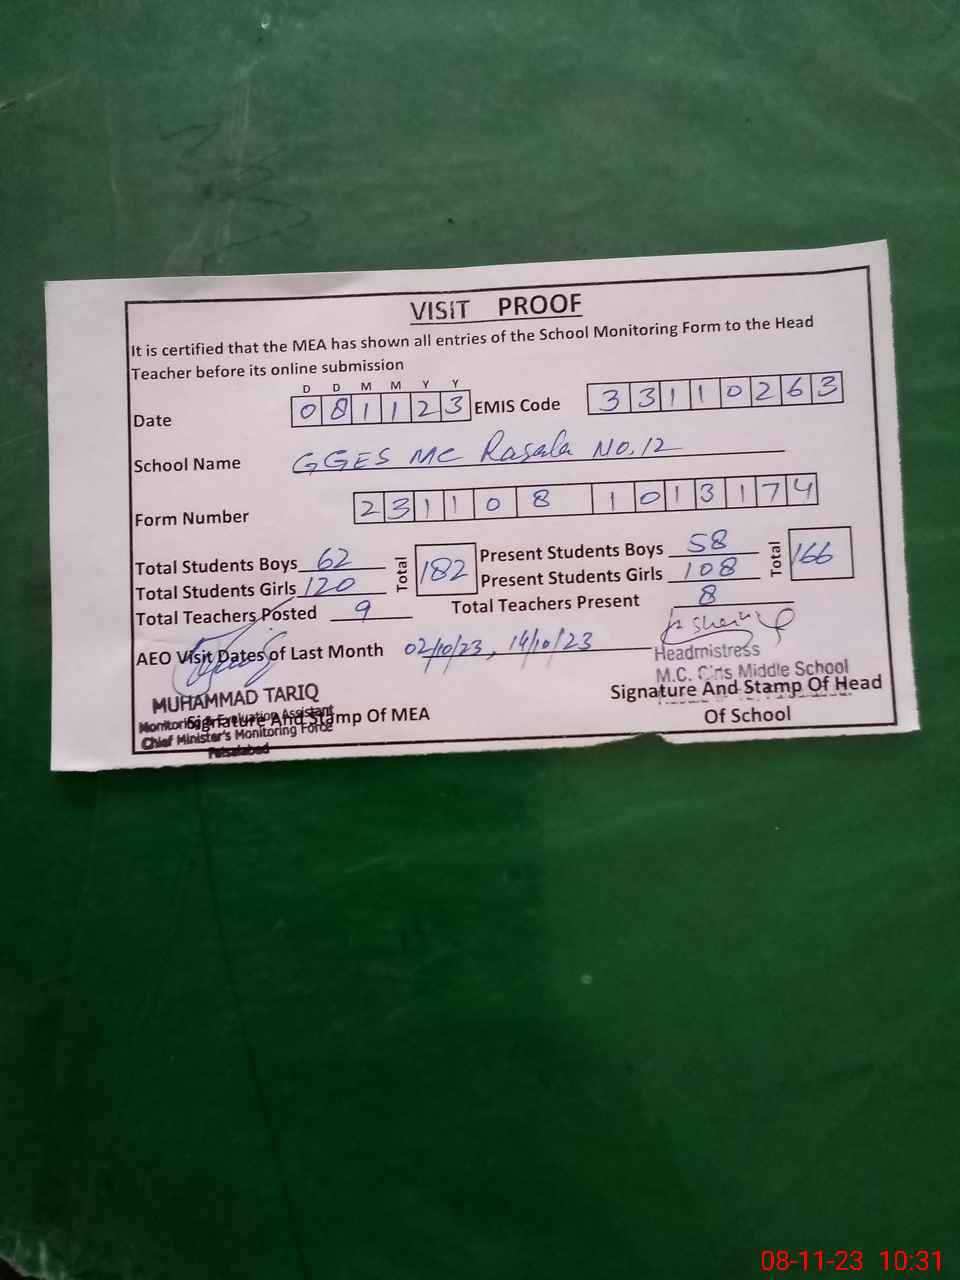 VISIT PROOF
It is certified that the MEA has shown all entries of the School Monitoring Form to the Head
Teacher before its online submission
D D M M Y Y
Date 0 8 1 1 2 3 EMIS Code 3 3 1 1 0 2 6 3
School Name GGES MC Rasala No.12
Form Number 2 3 1 1 0 8 1 0 1 3 1 7 4
Total Students Boys 62 Total 182 Present Students Boys 58 Total 166
Total Students Girls 120 Present Students Girls 108
Total Teachers Posted 9 Total Teachers Present 8
AEO Visit Dates of Last Month 02/10/23, 14/10/23
Headmistress
M.C. Girls Middle School
MUHAMMAD TARIQ
Monitoring & Evaluation Assistant
Chief Minister's Monitoring Force
Faisalabad
Signature And Stamp Of MEA
Signature And Stamp Of Head
Of School
08-11-23 10:31